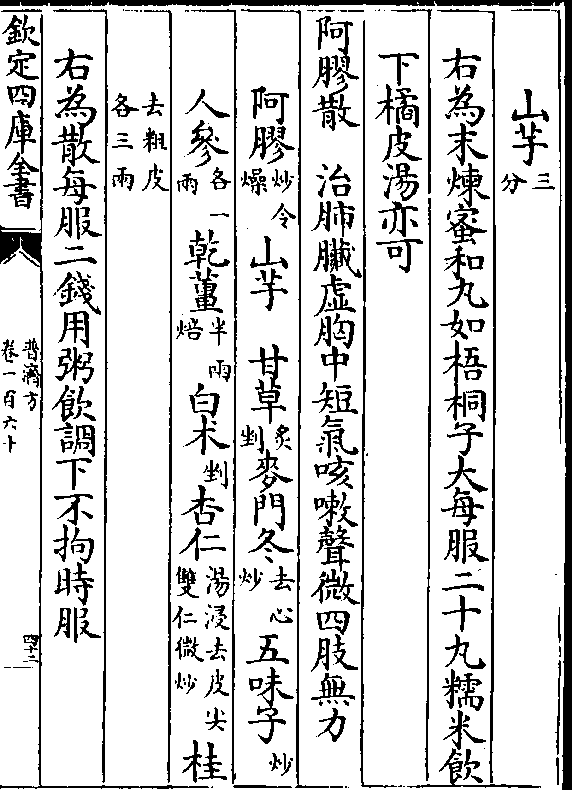 山芋三分
右為末煉蜜和丸如梧桐子大每服二十丸糯米飲
下橘皮湯亦可
阿膠散　治肺臟虚胸中短氣咳嗽聲微四肢無力
阿膠炒令燥　山芋　甘草炙剉　麥門冬去心炒　五味子炒
人參各一兩　乾薑半兩焙　白术剉　杏仁湯浸去皮尖雙仁微炒　桂
去粗皮各三兩
右為散每服二錢用粥飲調下不拘時服
欽定四庫全書
普濟方
卷一百六十
四十二